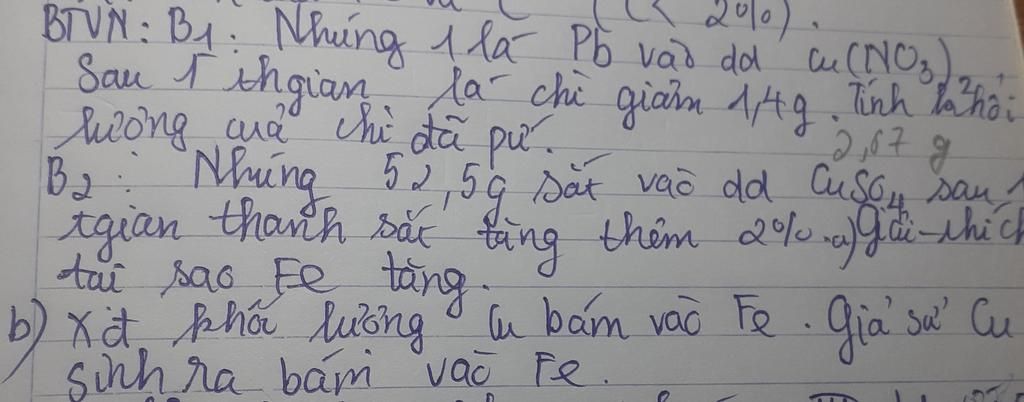 (< 2%).
BTVN: B1: Nhúng 1 lá Pb vào dd Cu(NO3)2.
Sau 1 thgian lá chì giảm 1,4g. Tính khối
lượng của chì đã pứ. 2,67 g
B2: Nhúng 52,5g sắt vào dd CuSO4 sau 1
tgian thanh sắt tăng thêm 2%. a) giải thích
tại sao Fe tăng.
b) Xđ khối lượng Cu bám vào Fe. Giả sử Cu
sinh ra bám vào Fe.